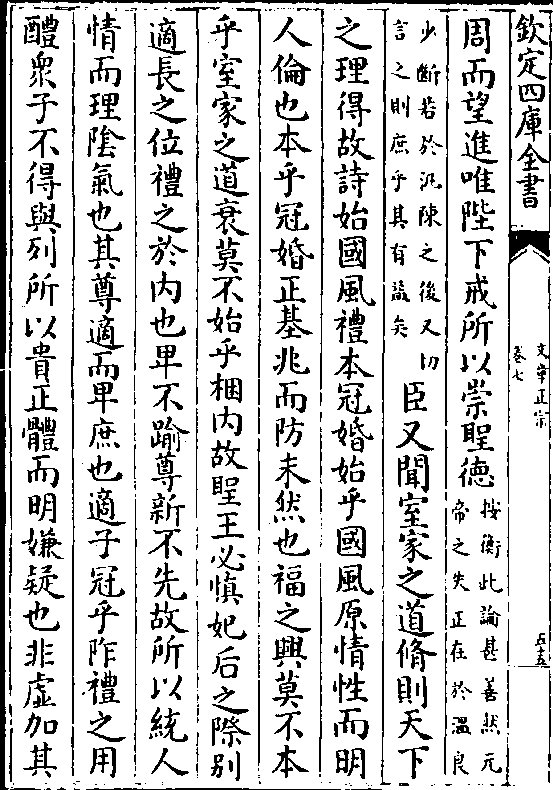 欽定四庫全書
文章正宗
卷七
五五
周而望進唯陛下戒所以崇聖德
按衡此論甚善然元
帝之失正在於溫良
少斷若於汎陳之後又切
言之則庶乎其有益矣
臣又聞室家之道脩則天下
之理得故詩始國風禮本冠婚始乎國風原情性而明
人倫也本乎冠婚正基兆而防未然也福之興莫不本
乎室家之道衰莫不始乎梱内故聖王必慎妃后之際别
適長之位禮之於内也卑不踰尊新不先故所以統人
情而理隂氣也其尊適而卑庶也適子冠乎阼禮之用
醴衆子不得與列所以貴正體而明嫌疑也非虚加其